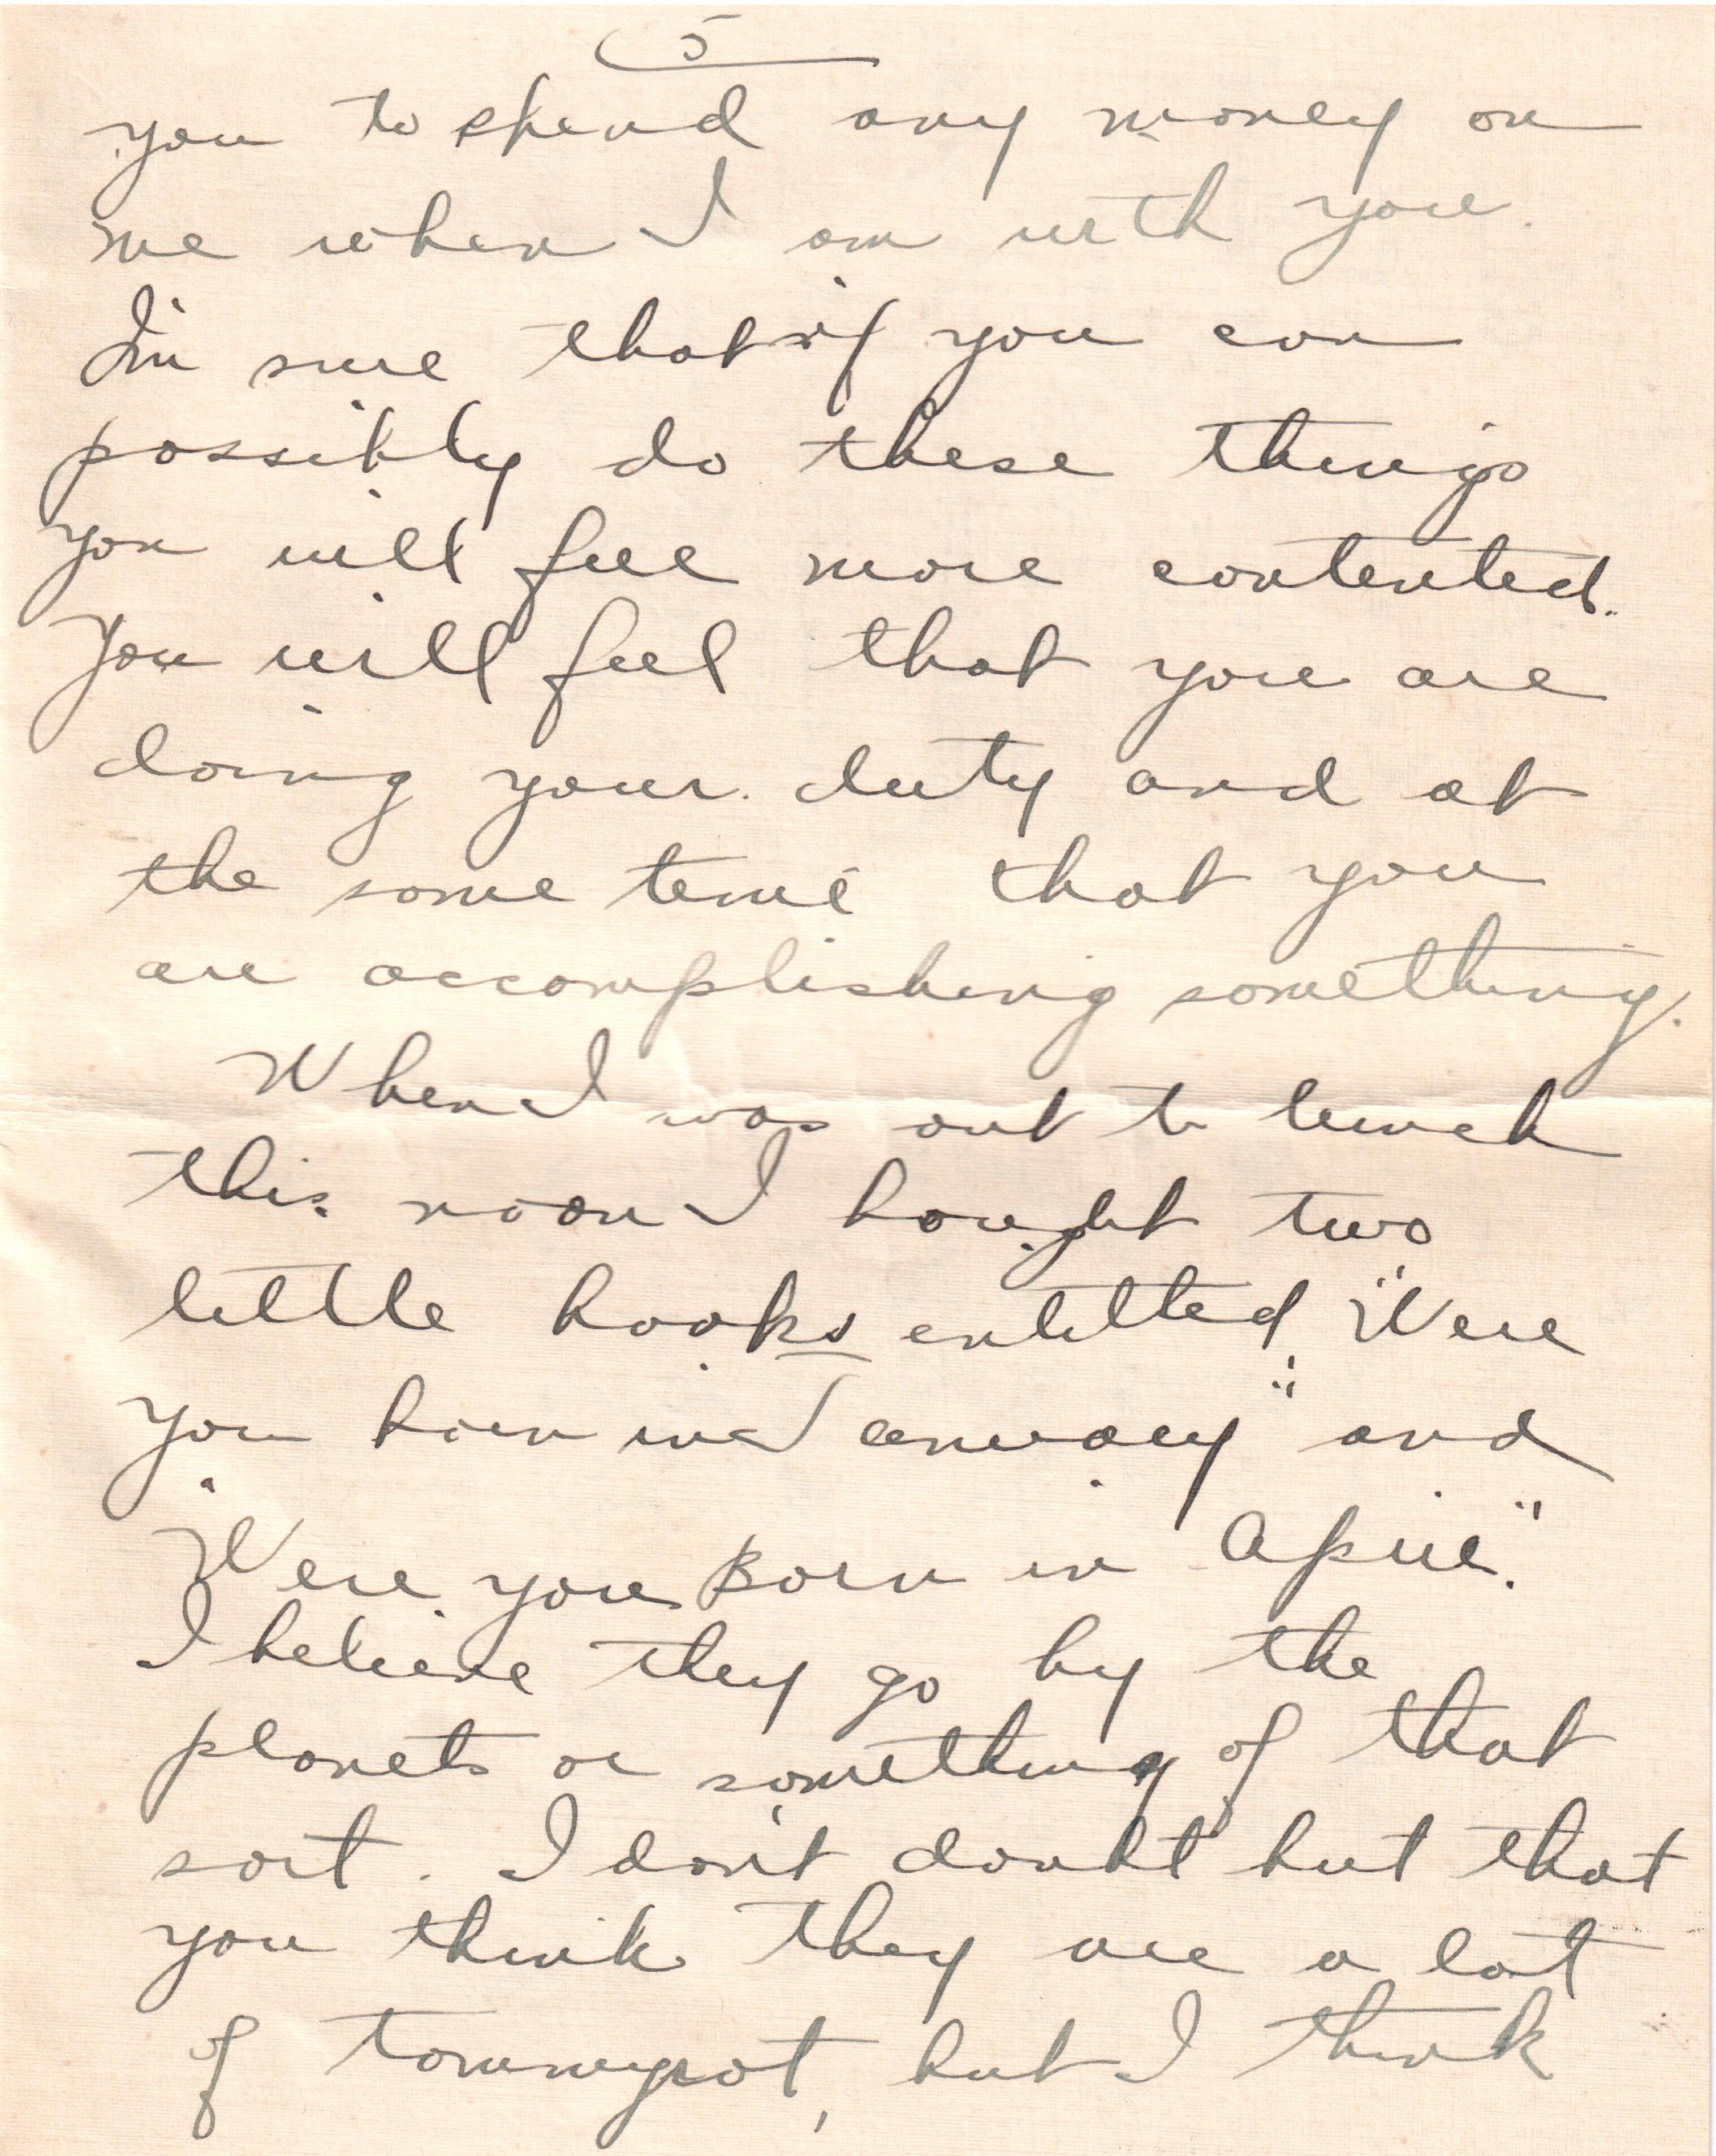 5
you to spend any money on
me when I am with you.
I'm sure that if you can
possibly do these things
you will feel more contented.
You will feel that you are
doing your duty and at
the same time that you
are accomplishing something.
When I was out to lunch
this noon I bought two
little books entitled, "Were
you born in January" and
"Were you Born in April".
I believe they go by the
planets or something of that
sort. I don't doubt but that
you think they are a lot
of tommyrot, but I think